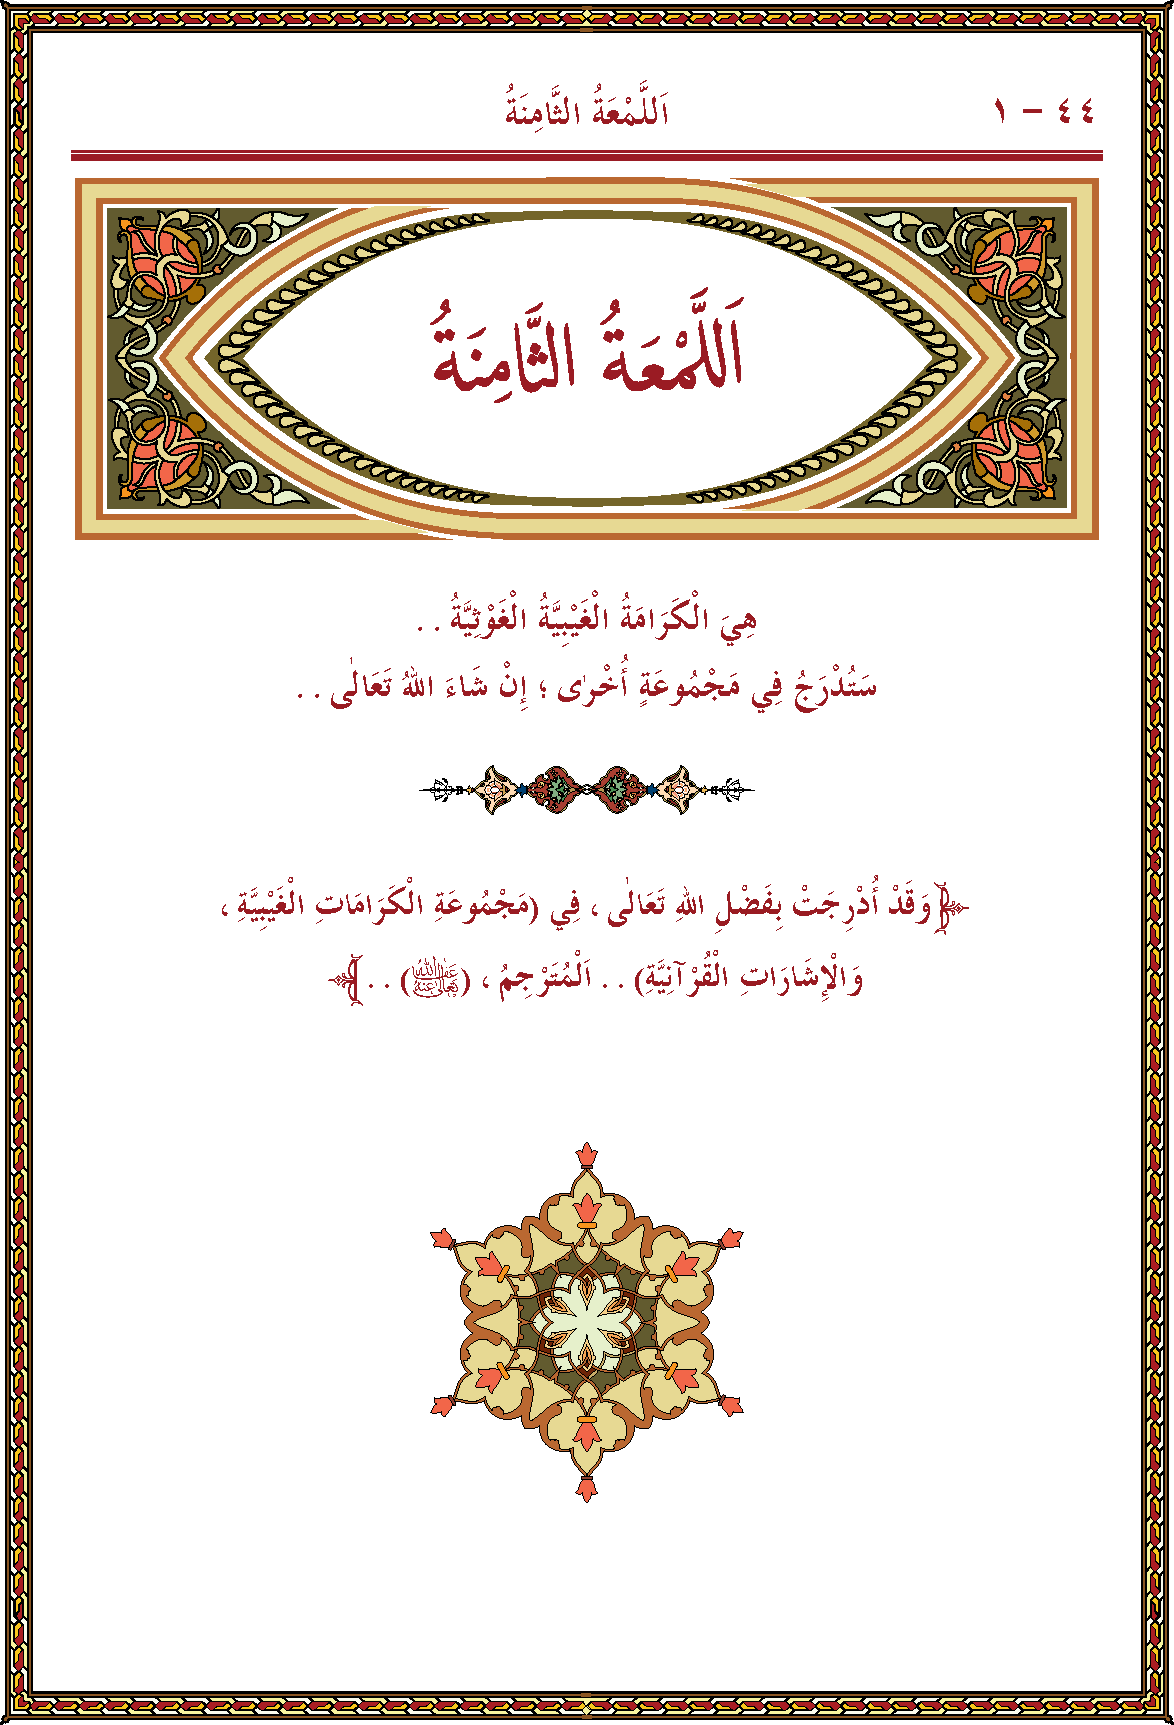 ٤٤ - ١
اَللَّمْعَةُ الثَّامِنَةُ
اَللَّمْعَةُ الثَّامِنَةُ
هِيَ الْكَرَامَةُ الْغَيْبِيَّةُ الْغَوْثِيَّةُ . .
سَتُدْرَجُ فِي مَجْمُوعَةٍ أُخْرٰى ؛ إِنْ شَاءَ اللهُ تَعَالٰى . .
﴿وَقَدْ أُدْرِجَتْ بِفَضْلِ اللهِ تَعَالٰى ، فِي (مَجْمُوعَةِ الْكَرَامَاتِ الْغَيْبِيَّةِ ،
وَالْإِشَارَاتِ الْقُرْآنِيَّةِ) . . اَلْمُتَرْجِمُ ، (عَفَا اللهُ تَعَالٰى عَنْهُ) . . ﴾